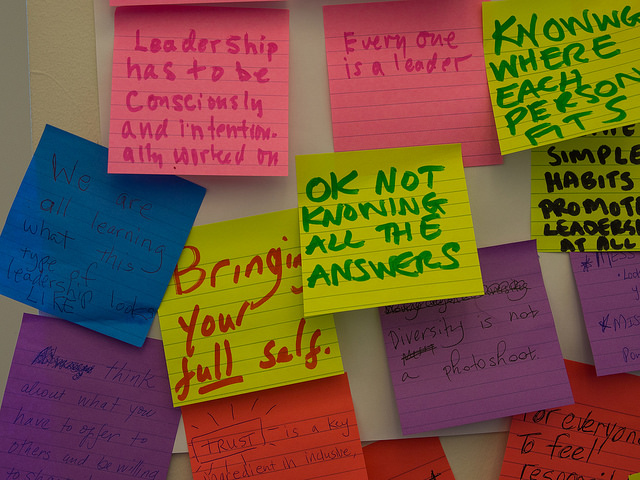 Leadership
has to be
Consciously
and intention-
ally worked on
Every one
is a leader
KNOWING
WHERE
EACH
PERSON
FITS
SIMPLE
HABITS
PROMOTE
LEADERS
AT ALL
We are
all learning
what this
type of
leadership looks
LIKE
Bringing
your
full self.
OK NOT
KNOWING
ALL THE
ANSWERS
Diversity is not
a photoshoot.
think
about what you
have to offer to
others and be willing
to
TRUST is a key
ingredient in inclusive,
for everyone
To feel